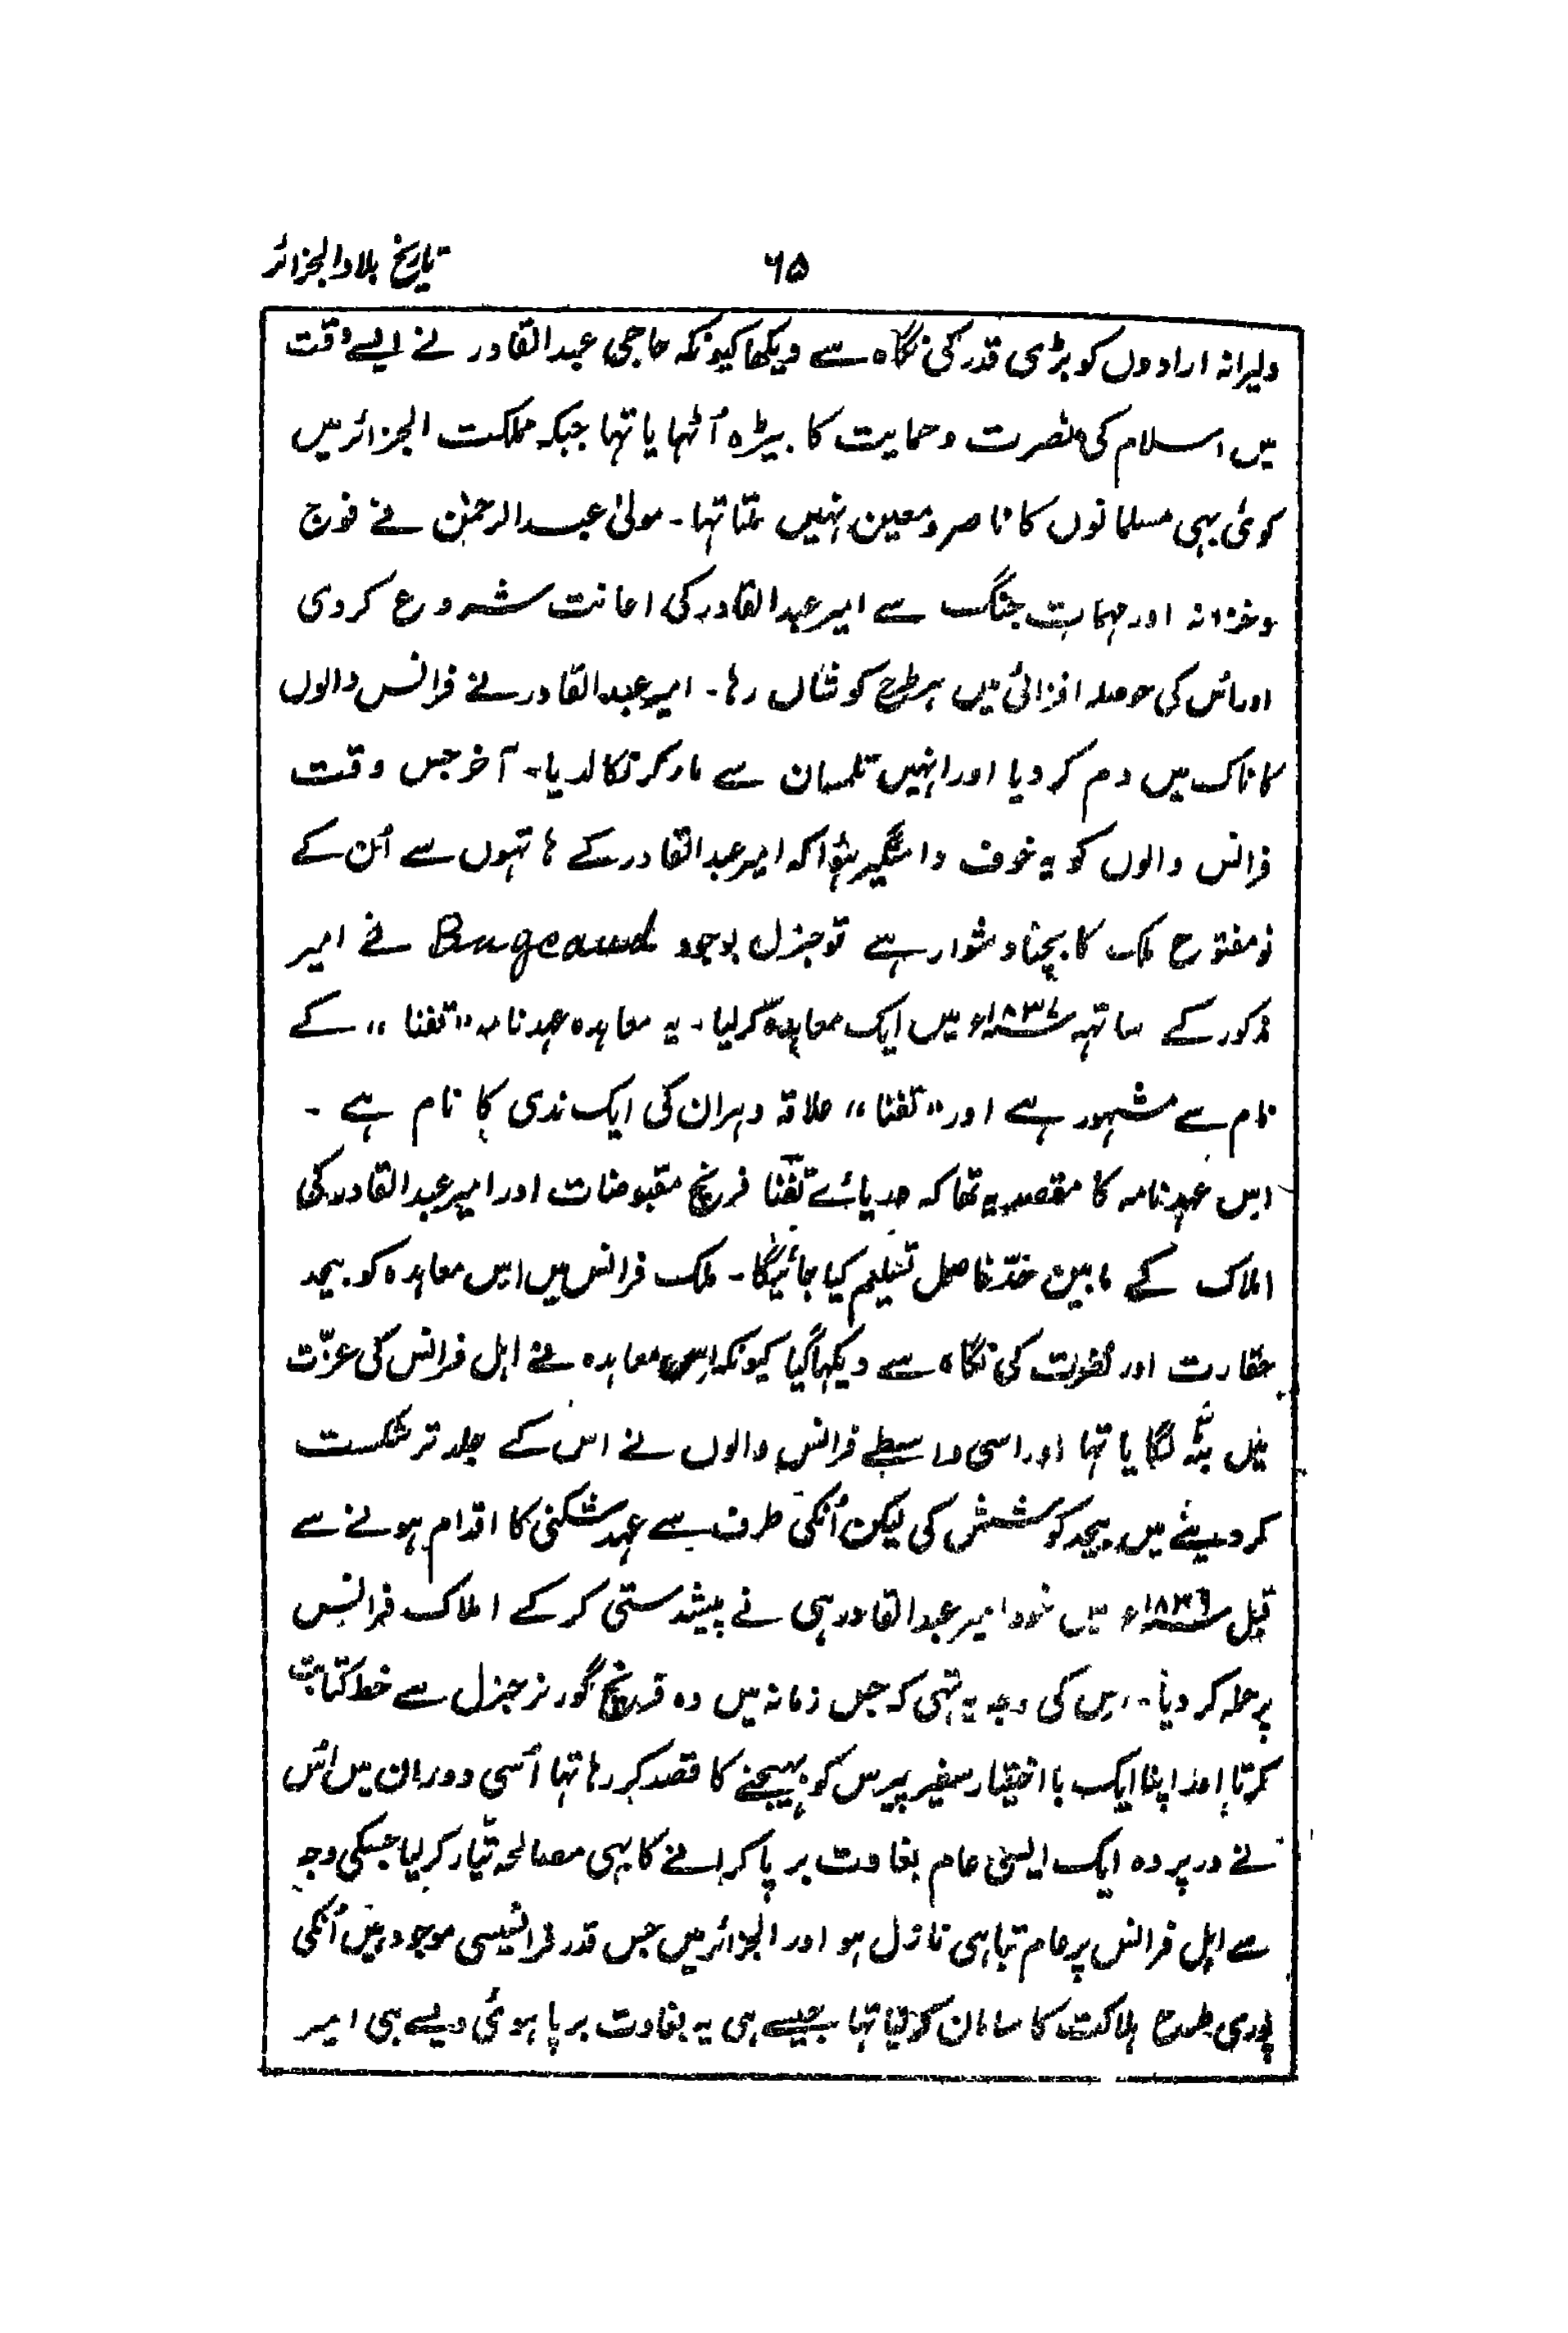 تاریخ بلاد الجزائر
۶۵
دلیرانہ ارادوں کو بڑی قدر کی نگاہ سے دیکھا کیونکہ حاجی عبدالقادر نے ایسے وقت
میں اسلام کی نصرت و حمایت کا بیڑہ اُٹہایا تہا جبکہ مملکت الجزائر میں
کوئی بہی مسلمانوں کا ناصر و معین نہیں ملتا تہا۔ مولیٰ عبدالرحمٰن نے فوج
وخزانہ اور مہمات جنگ سے امیر عبدالقادر کی اعانت شروع کردی
اور اُس کی حوصلہ افزائی میں ہر طرح کوشاں رہا۔ امیر عبدالقادر نے فرانس والوں
کا ناک میں دم کردیا اور انہیں تلمسان سے مار کر نکالدیا۔ آخر جس وقت
فرانس والوں کو یہ خوف دامنگیر ہوا کہ امیر عبدالقادر کے ہاتہوں سے اُن کے
نو مفتوح ملک کا بچنا دشوار ہے تو جنرل بوجود Bugeaud نے امیر
مذکور کے ساتہہ ۱۸۳۷ء میں ایک معاہدہ کرلیا۔ یہ معاہدہ عہدنامہ "تفنا" کے
نام سے مشہور ہے اور "تفنا" علاقہ وہران کی ایک ندی کا نام ہے ۔
اس عہدنامہ کا مقصد یہ تھا کہ دریائے تفنا فرنچ مقبوضات اور امیر عبدالقادر کی
املاک کے مابین حدّ فاصل تسلیم کیا جائیگا۔ ملک فرانس میں اس معاہدہ کو بیحد
حقارت اور نفرت کی نگاہ سے دیکہا گیا کیونکہ اِس معاہدہ نے اہل فرانس کی عزّت
میں بٹّہ لگایا تہا اور اسی واسطے فرانس والوں نے اس کے جلد تر شکست
کردینے میں بیحد کوشش کی لیکن اُنکی طرف سے عہد شکنی کا اقدام ہونے سے
قبل ۱۸۳۹ء میں خود امیر عبدالقادر ہی نے پیشدستی کرکے املاک فرانس
پر حملہ کردیا۔ اس کی وجہ یہ تہی کہ جس زمانہ میں وہ فرنچ گورنر جنرل سے خط کتابت
کرتا اور اپنا ایک بااختیار سفیر پیرس کو بہیجنے کا قصد کررہا تہا اُسی دوران میں اُس
نے درپردہ ایک ایسی عام بغاوت برپا کرانے کا بہی مصالحہ تیّار کرلیا جسکی وجہ
سے اہل فرانس پر عام تباہی نازل ہو اور الجزائر میں جس قدر فرانسیسی موجود ہیں اُنکی
پوری طرح ہلاکت کا سامان کرلیا تہا جیسے ہی یہ بغاوت برپا ہوئی ویسے ہی امیر